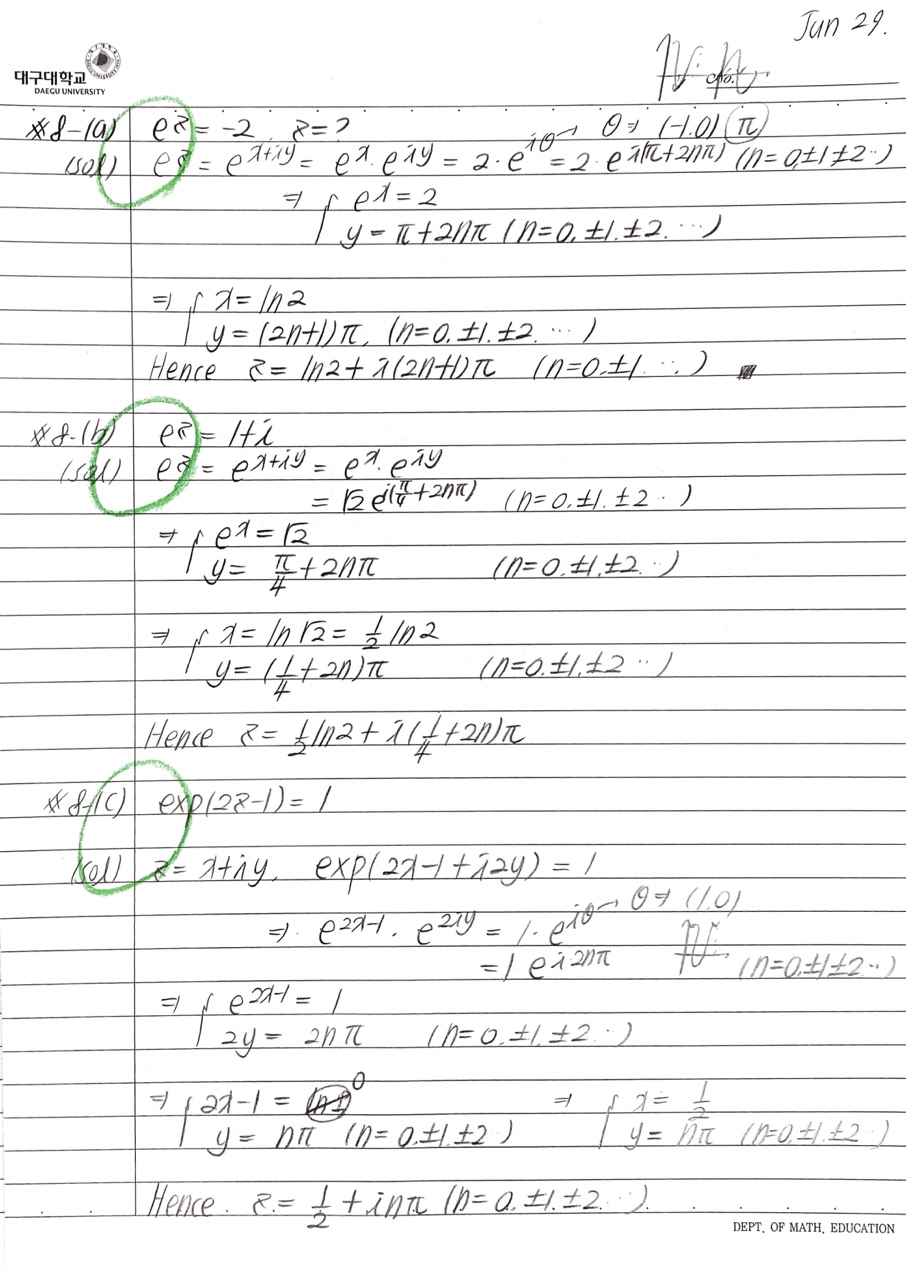 Jun 29.
대구대학교
DAEGU UNIVERSITY
No.
#8-(a) e^z = -2, z = ?
(sol) e^z = e^{x+iy} = e^x · e^{iy} = 2 · e^{iθ} → θ ⇒ (-1.0) π
= 2 · e^{i(π+2nπ)} (n=0,±1.±2··)
⇒ { e^x = 2
y = π+2nπ (n=0. ±1. ±2. ···)
⇒ { x = ln2
y = (2n+1)π, (n=0. ±1. ±2. ···)
Hence z = ln2 + i(2n+1)π (n=0.±1. ···)
#8-(b) e^z = 1+i
(sol) e^z = e^{x+iy} = e^x · e^{iy}
= √2 e^{i(π/4+2nπ)} (n=0. ±1. ±2 ··)
⇒ { e^x = √2
y = π/4 + 2nπ (n=0. ±1. ±2. ··)
⇒ { x = ln√2 = 1/2 ln2
y = (1/4 + 2n)π (n=0.±1.±2 ··)
Hence z = 1/2 ln2 + i(1/4 + 2n)π
#8-(c) exp(2z-1) = 1
(sol) z = x+iy, exp(2x-1+i2y) = 1
⇒ e^{2x-1} · e^{2iy} = 1 · e^{iθ} → θ ⇒ (1.0)
= 1 e^{i2nπ} (n=0.±1±2··)
⇒ { e^{2x-1} = 1
2y = 2nπ (n=0. ±1. ±2 ··)
⇒ { 2x-1 = 0 ⇒ { x = 1/2
y = nπ (n=0.±1.±2 ) y = nπ (n=0.±1.±2··)
Hence. z = 1/2 + inπ (n=0. ±1. ±2. ··)
DEPT. OF MATH. EDUCATION